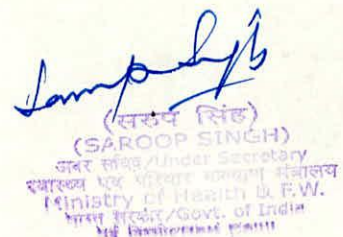 (सरुप सिंह)
(SAROOP SINGH)
अवर सचिव/Under Secretary
स्वास्थ्य एवं परिवार कल्याण मंत्रालय
Ministry of Health & F.W.
भारत सरकार/Govt. of India
नई